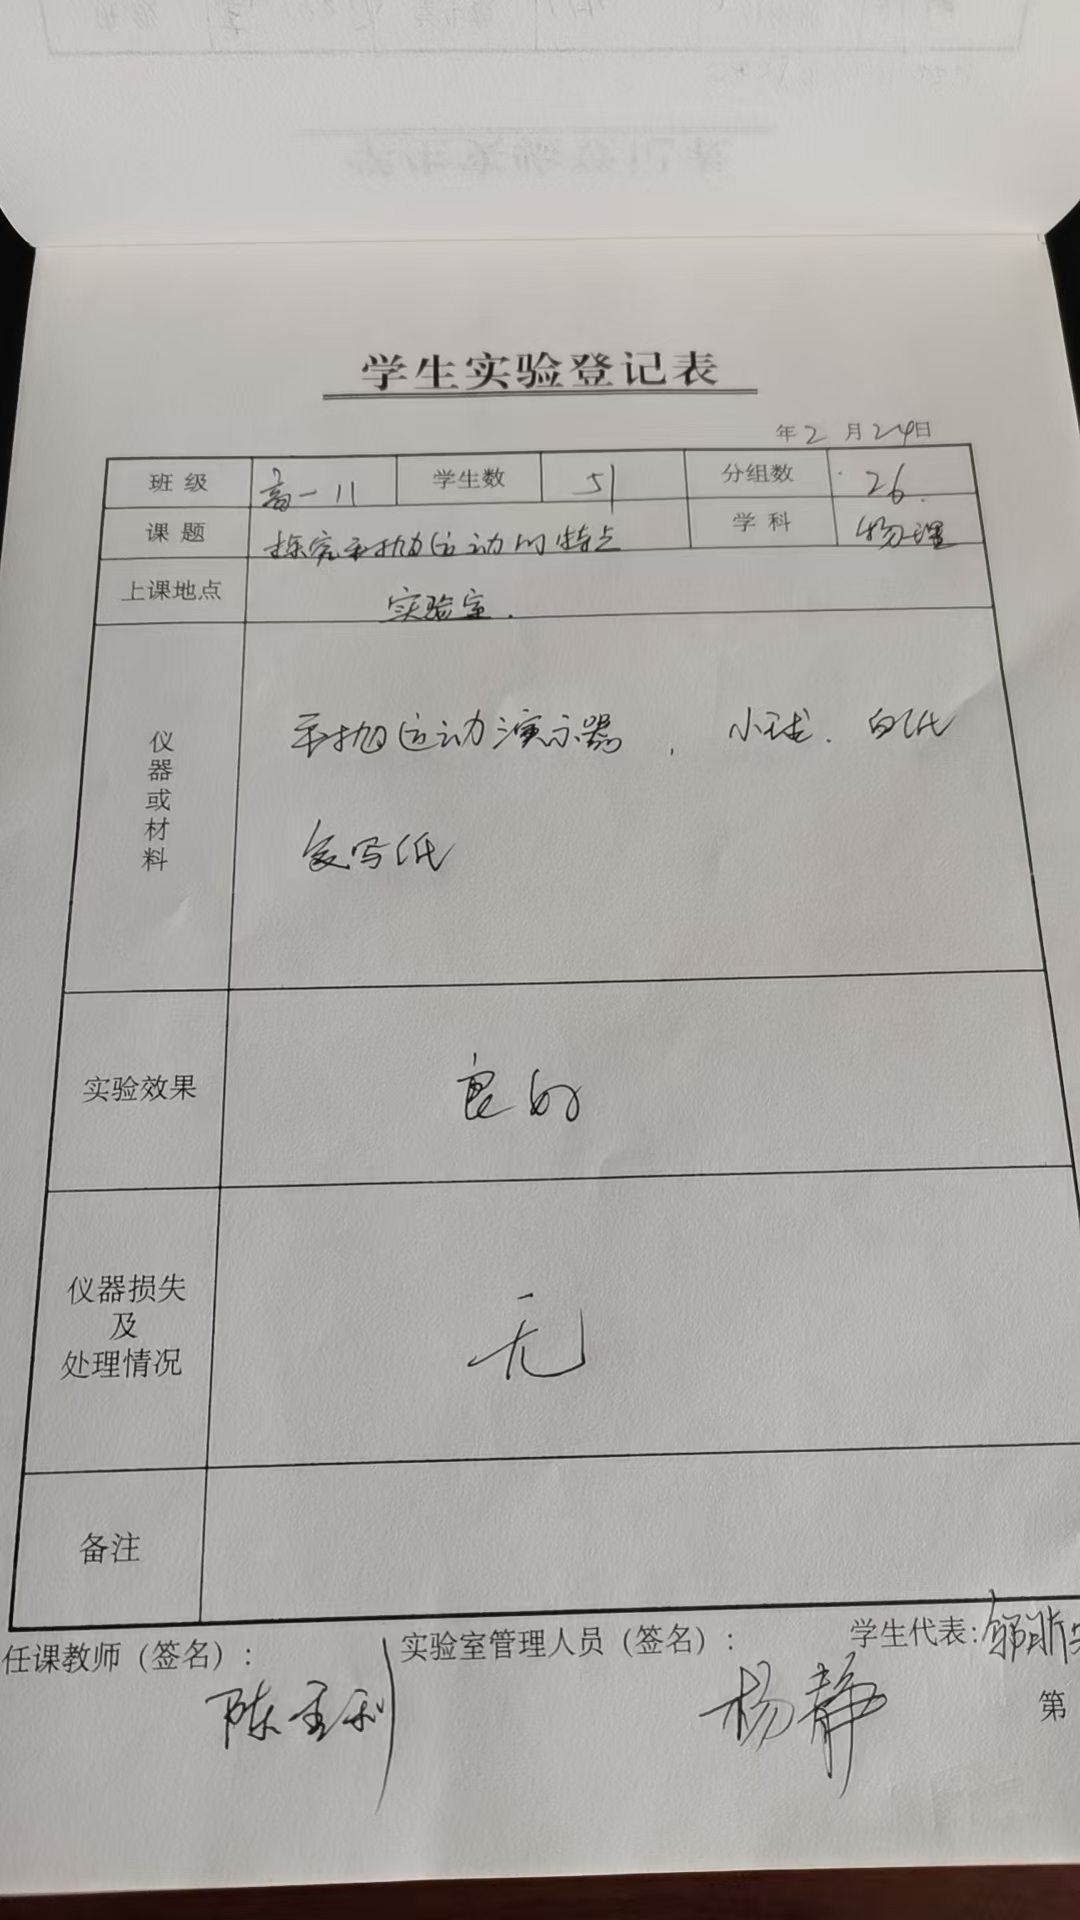 学生实验登记表
年2月24日
班级 高一11 学生数 51 分组数 26.
课题 探究平抛运动的特点 学科 物理
上课地点 实验室.
仪器或材料 平抛运动演示器, 小球. 白纸
复写纸
实验效果 良好
仪器损失
及
处理情况 无
备注
任课教师（签名）: 实验室管理人员（签名）: 学生代表: 郭
陈 利 杨静
第